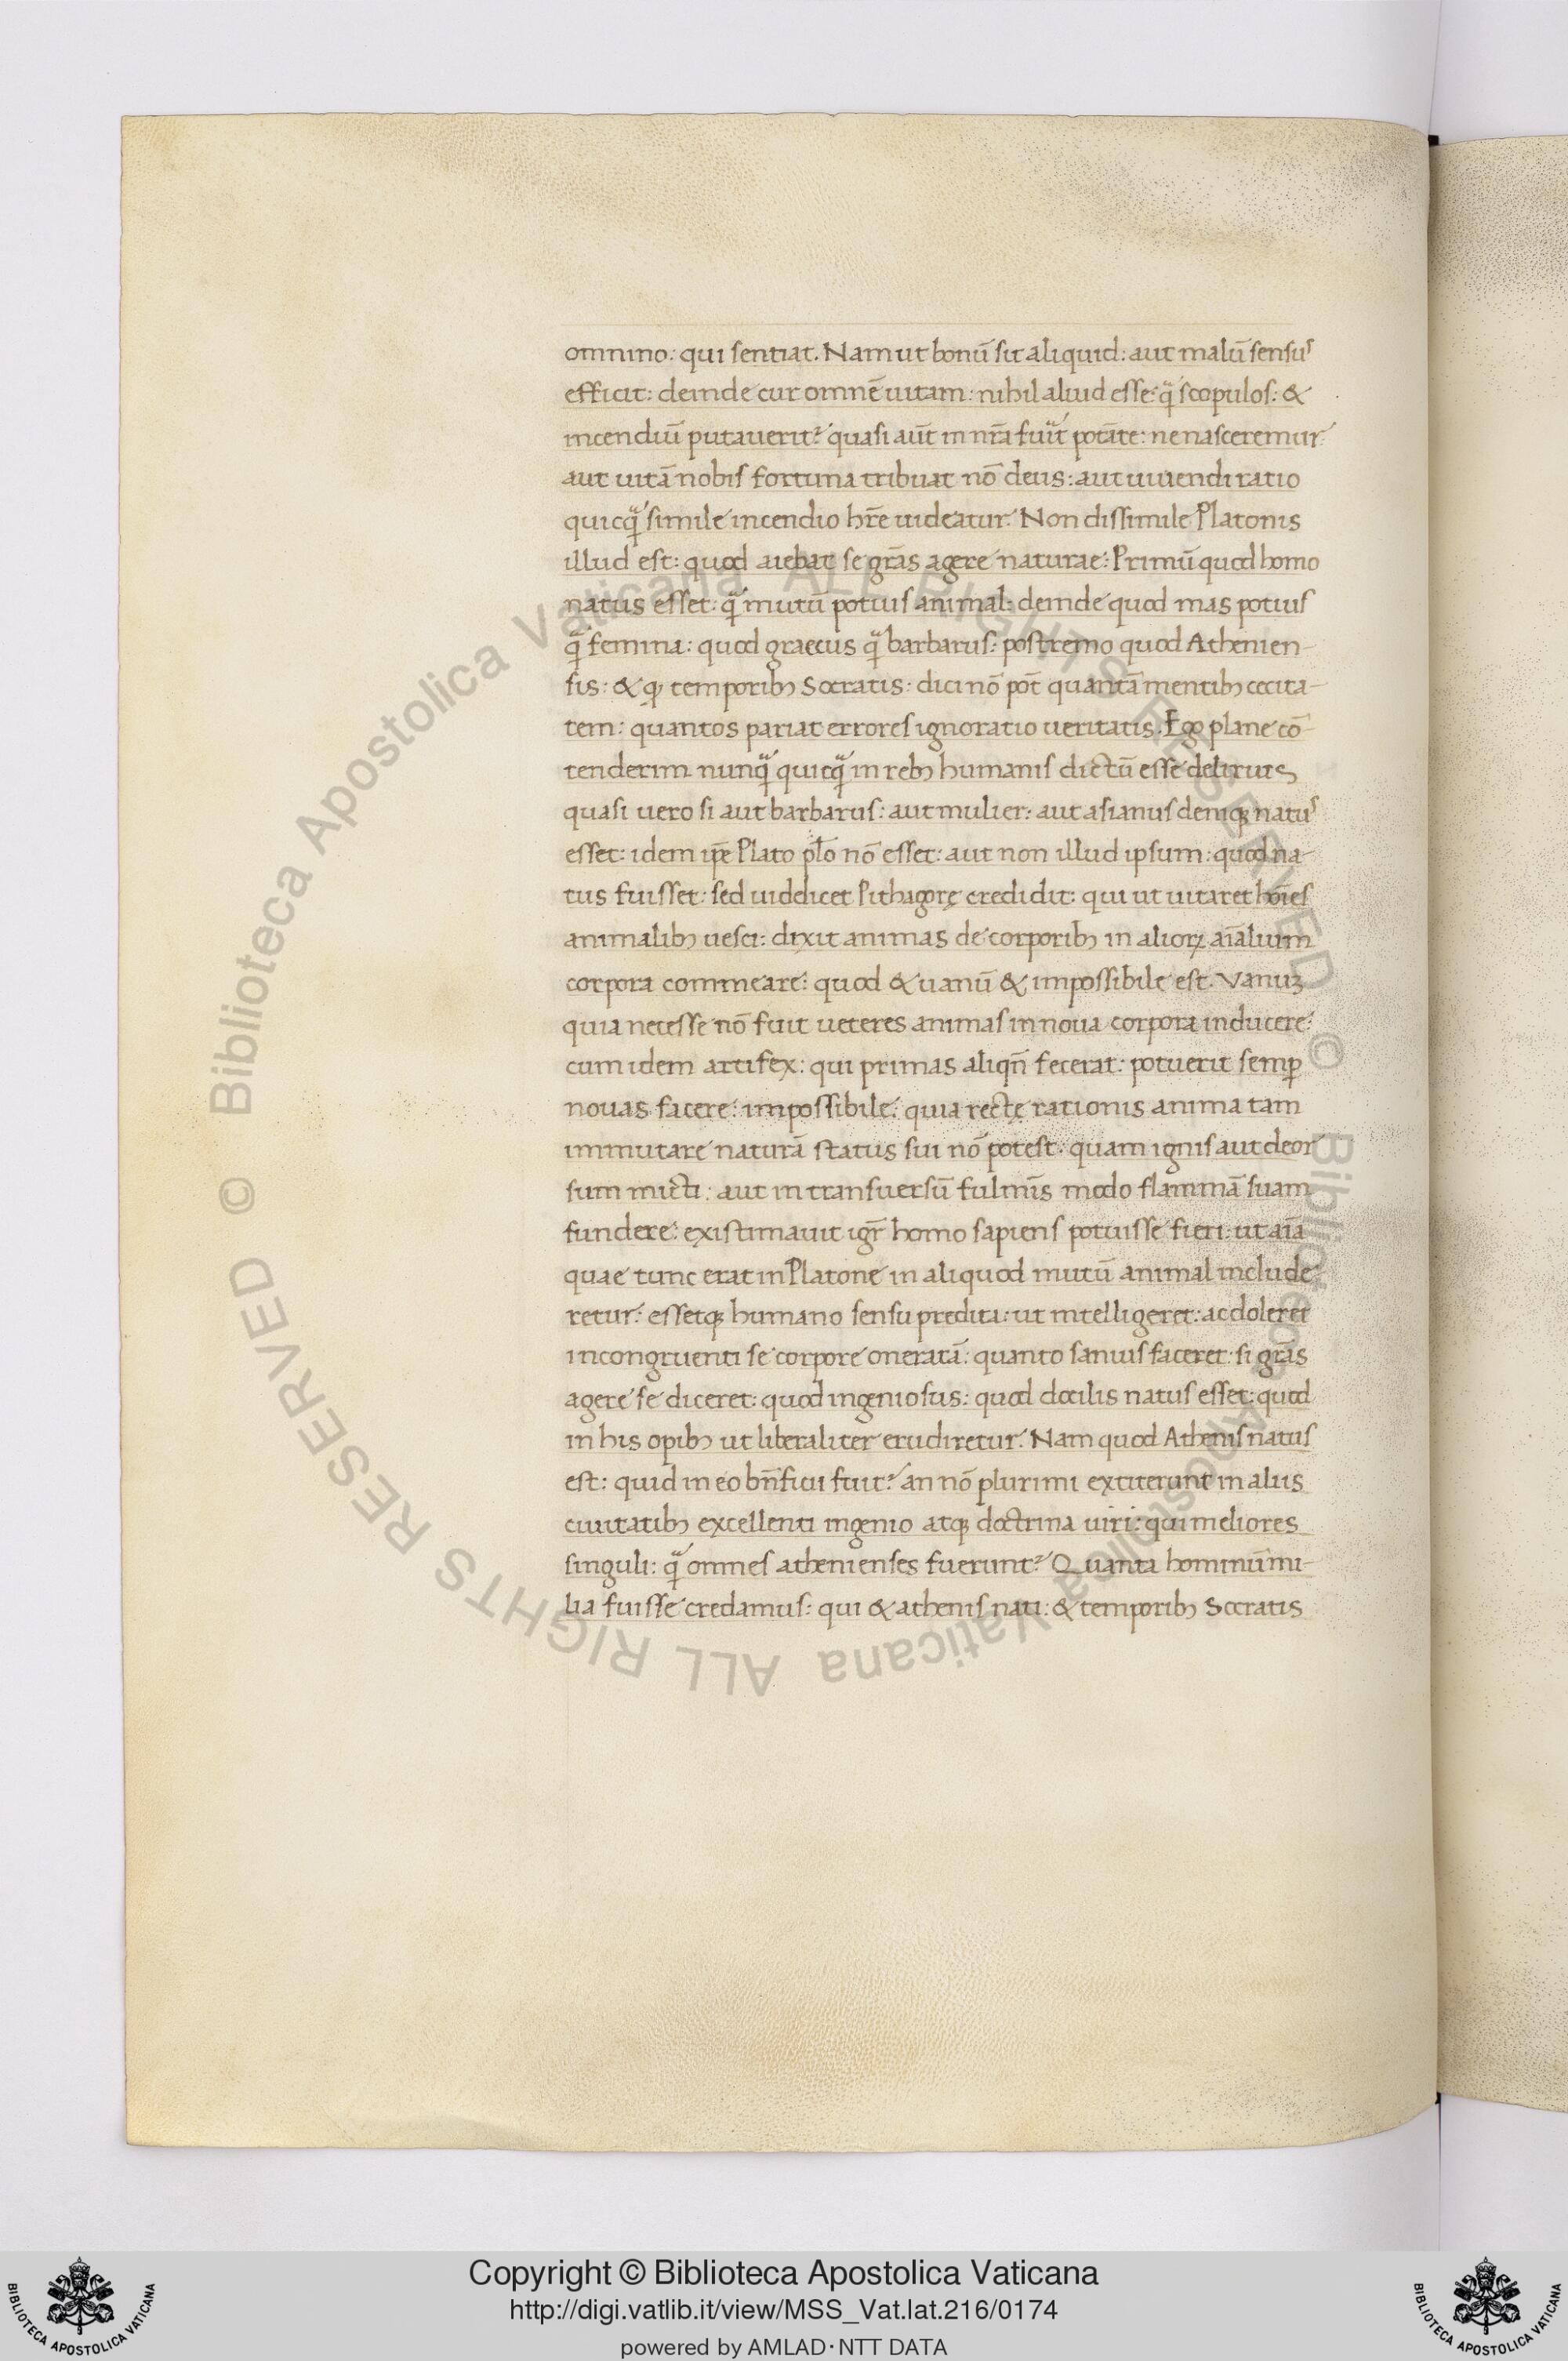 omnino: qui sentiat. Nam ut bonū sit aliquid: aut malū sensuˢ
efficit: deinde cur omnē uitam: nihil aliud esse: qͣ̄ scopulos: &
incendiū putauerit? quasi aūt in nr̄a fuīt potāte: ne nasceremur:
aut uitā nobis fortuna tribuat nō deus: aut uiuendi ratio
quicqͣ̄ simile incendio hr̄e uideatur. Non dissimile Platonis
illud est: quod aiebat se gr̄as agere naturae: Primū quod homo
natus esset: qͣ̄ mutū potius animal: deinde quod mas potius
qͣ̄ femina: quod graecus qͣ̄ barbarus: postremo quod Athenien-
sis: & ꝙ temporibꝫ Socratis: dici nō pōt quantā mentibꝫ cecita-
tem: quantos pariat errores ignoratio ueritatis. Ego plane cō-
tenderim nunqͣ̄ quicqͣ̄ in rebꝫ humanis dictū esse delirius
quasi uero si aut barbarus: aut mulier: aut asianus deniqꝫ natuˢ
esset: idem ip̄e Plato pl̄o nō esset: aut non illud ipsum: quod na-
tus fuisset: sed uidelicet Pithagorę credidit: qui ut uitaret hoīes
animalibꝫ uesci: dixit animas de corporibꝫ in alioꝝ aīalium
corpora commeare: quod & uanū & impossibile est. Vanuꝫ
quia necesse nō fuit ueteres animas in noua corpora inducere:
cum idem artifex: qui primas aliqn̄ fecerat: potuerit semꝑ
nouas facere: impossibile: quia rectę rationis anima tam
immutare naturā status sui nō potest: quam ignis aut deor
sum micti: aut in transuersū fulmīs modo flammā suam
fundere: existimauit igr̄ homo sapiens potuisse fieri: ut aīa
quae tunc erat in Platone in aliquod mutū animal include
retur: essetqꝫ humano sensu predita: ut intelligeret: ac doleret
incongruenti se corpore oneratā: quanto sanius faceret: si gr̄as
agere se diceret: quod ingeniosus: quod docilis natus esset: quod
in his opibꝫ ut liberaliter erudiretur. Nam quod Athenis natus
est: quid in eo bn̄ficii fuit? an nō plurimi extiterunt in aliis
ciuitatibꝫ excellenti ingenio atqꝫ doctrina uiri: qui meliores
singuli: qͣ̄ omnes athenienses fuerunt? Quanta hominū mi-
lia fuisse credamus: qui & athenis nati: & temporibꝫ Socratis
© Biblioteca Apostolica Vaticana ALL RIGHTS RESERVED
© Biblioteca Apostolica Vaticana ALL RIGHTS RESERVED
BIBLIOTECA APOSTOLICA VATICANA
Copyright © Biblioteca Apostolica Vaticana
http://digi.vatlib.it/view/MSS_Vat.lat.216/0174
powered by AMLAD·NTT DATA
BIBLIOTECA APOSTOLICA VATICANA